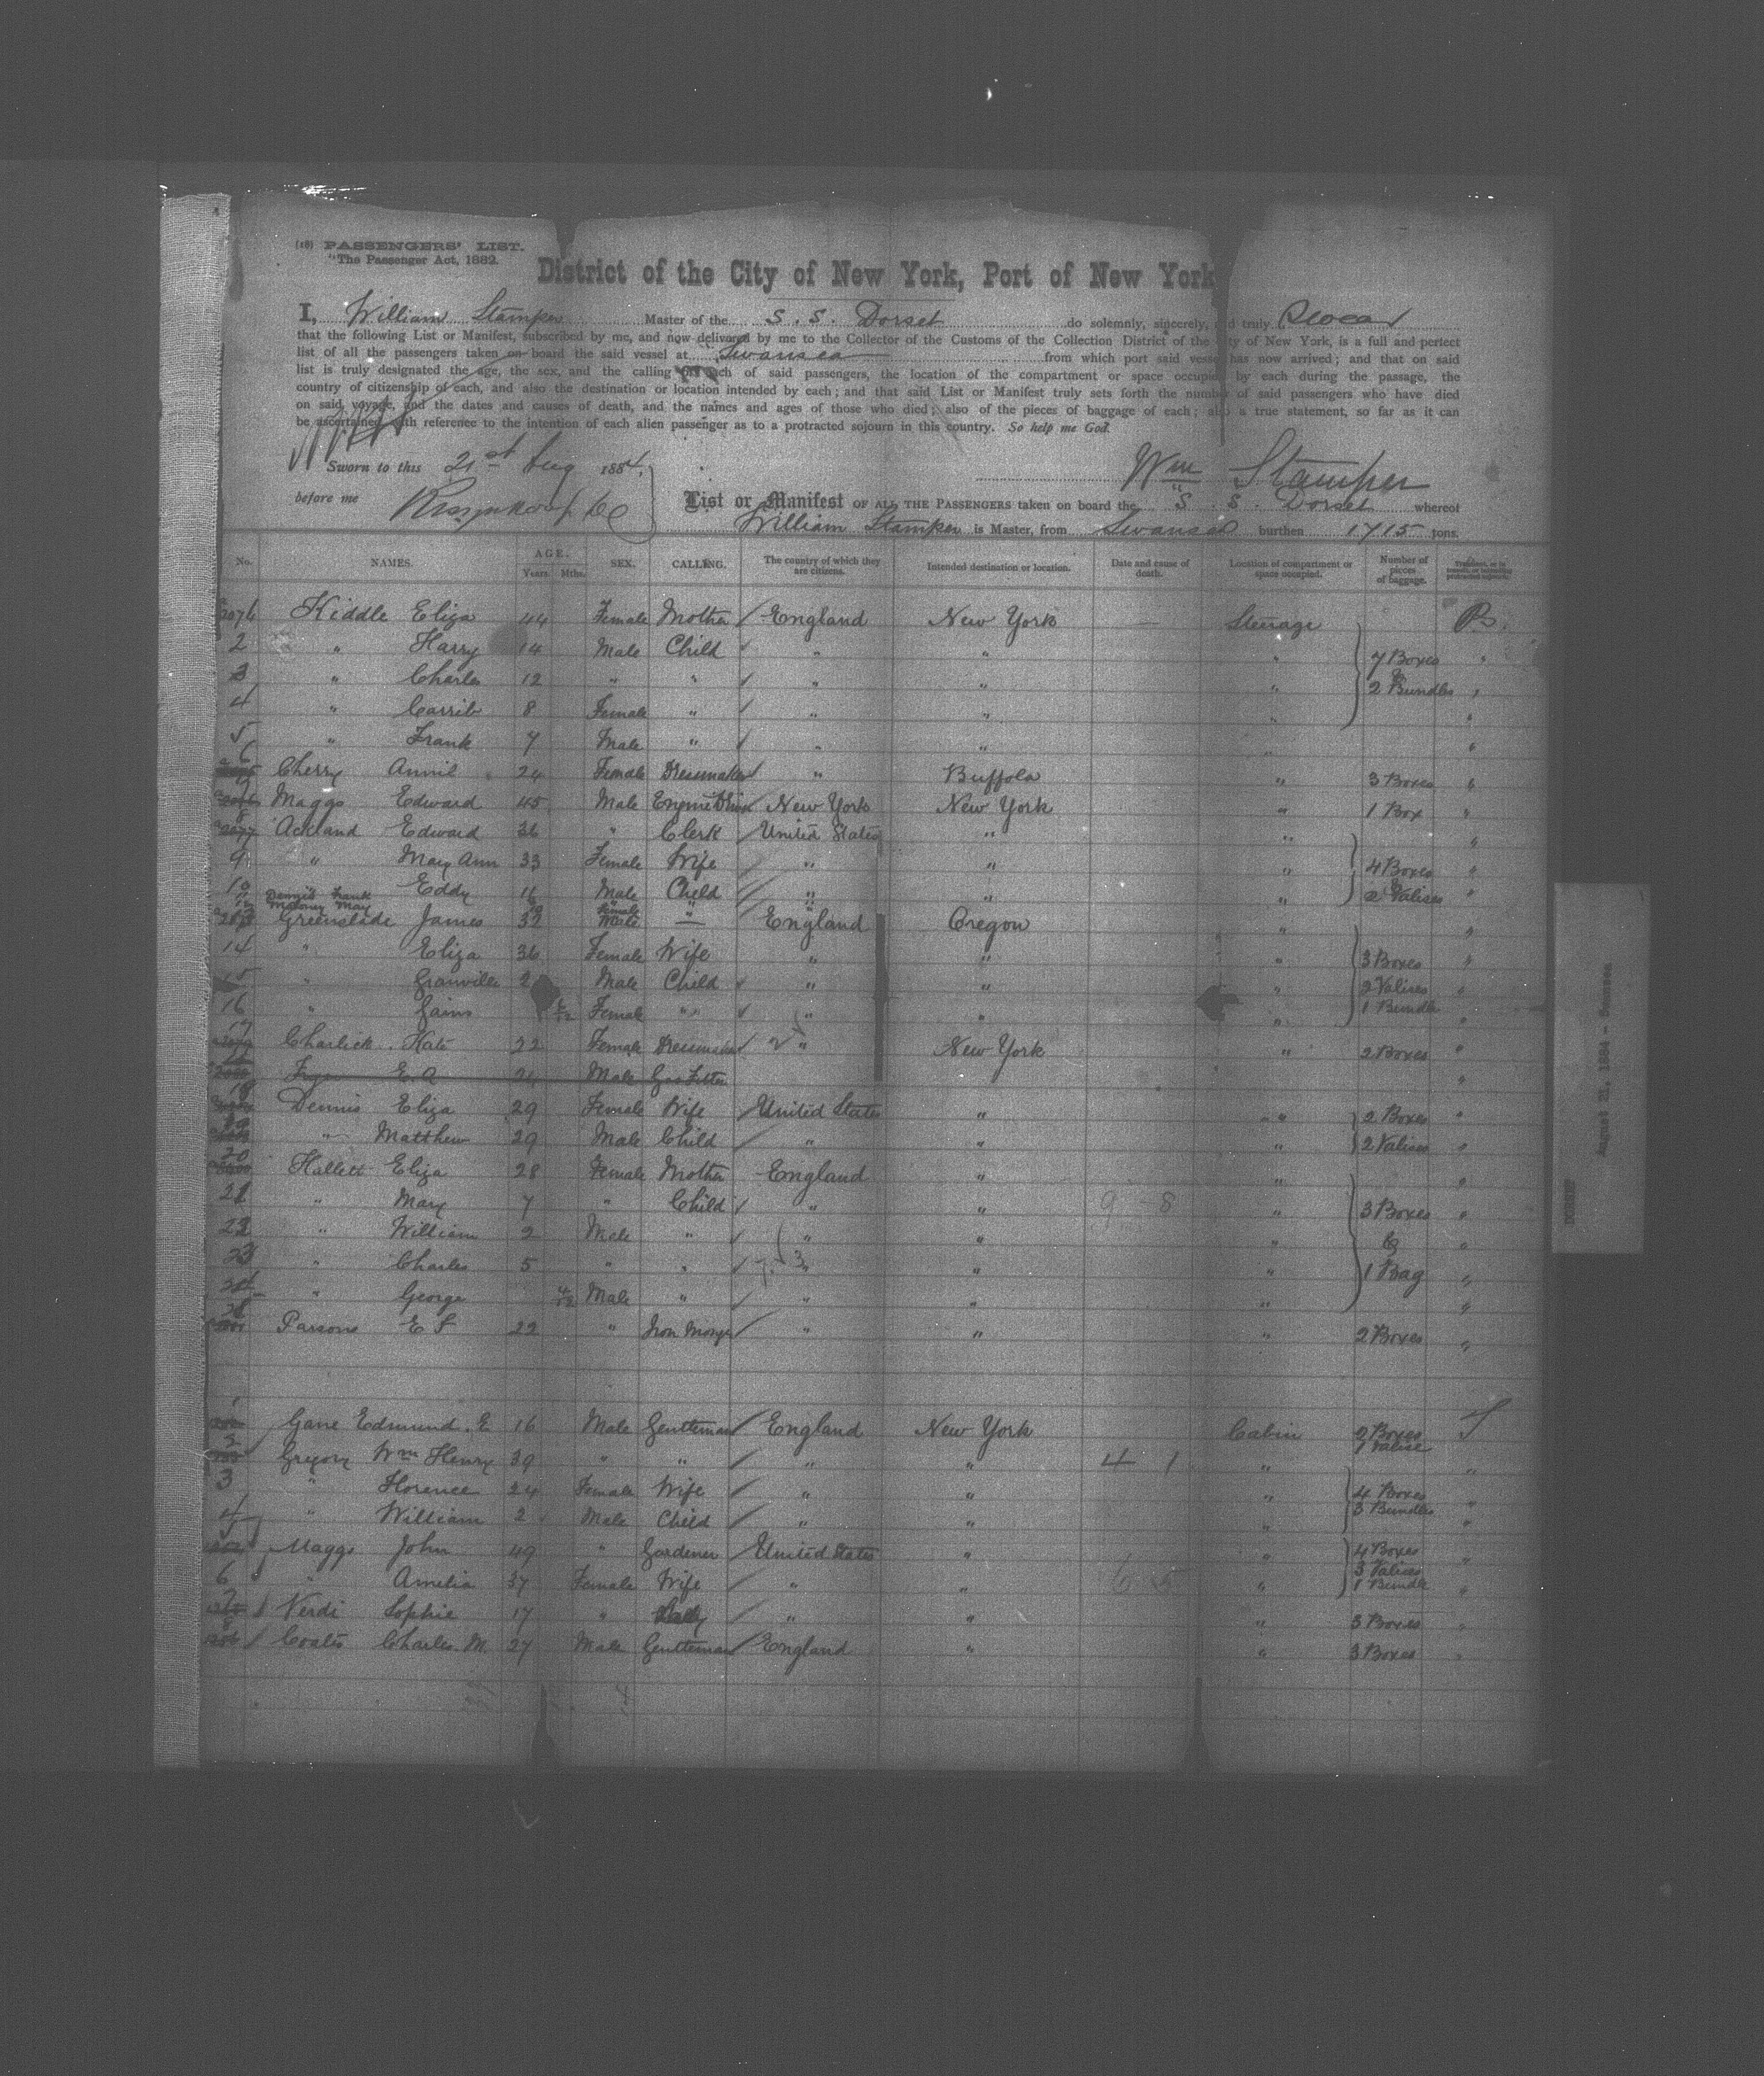 (18) PASSENGERS' LIST.
"The Passenger Act, 1882.
District of the City of New York, Port of New York
I, William Stamper Master of the S. S. Dorset do solemnly, sincerely, and truly Declar
that the following List or Manifest, subscribed by me, and now delivered by me to the Collector of the Customs of the Collection District of the City of New York, is a full and perfect
list of all the passengers taken on board the said vessel at Swansea from which port said vessel has now arrived; and that on said
list is truly designated the age, the sex, and the calling of each of said passengers, the location of the compartment or space occupied by each during the passage, the
country of citizenship of each, and also the destination or location intended by each; and that said List or Manifest truly sets forth the number of said passengers who have died
on said voyage, and the dates and causes of death, and the names and ages of those who died; also of the pieces of baggage of each; also a true statement, so far as it can
be ascertained with reference to the intention of each alien passenger as to a protracted sojourn in this country. So help me God.
Sworn to this 21st Aug 1884. Wm Stamper
before me
List or Manifest OF ALL THE PASSENGERS taken on board the S. S. Dorset whereof
William Stamper is Master, from Swansea burthen 1715 tons.
No. NAMES. AGE. Years. Mths. SEX. CALLING. The country of which they are citizens. Intended destination or location. Date and cause of death. Location of compartment or space occupied. Number of pieces of baggage.
Kiddle Eliza 44 Female Mother England New York Steerage
2 " Harry 14 Male Child " " " 7 Boxes "
3 " Charles 12 " " " " " & 2 Bundles "
4 " Carrie 8 Female " " " " "
5 " Frank 7 Male " " " " "
6 Cherry Annie 24 Female Dressmaker " Buffola " 3 Boxes "
7 Maggs Edward 45 Male New York New York " 1 Box "
8 Ackland Edward 36 " Clerk United States " " "
9 " Mary Ann 33 Female Wife " " " 4 Boxes "
10 " Eddy 16 Male Child " " " & 2 Valises "
11 Dennis Frank " "
12 Mary Female "
13 Greenslade James 32 Male — England Oregon " "
14 " Eliza 36 Female Wife " " " 3 Boxes "
15 " Granville 2 Male Child " " " 2 Valises "
16 " Female " " " " 1 Bundle "
17 Charlick Kate 22 Female Dressmaker " New York " 2 Boxes "
E. A 24 Male Gas Fitter "
18 Dennis Eliza 29 Female Wife United States " " 2 Boxes "
" Matthew 29 Male Child " " " 2 Valises "
20 Hallett Eliza 28 Female Mother England " " "
21 " Mary 7 " Child " " 9 - 8 " 3 Boxes "
22 " William 2 Male " " " " & "
23 " Charles 5 " " " " " 1 Bag "
24 " George 4/12 Male " " " " "
Parsons E S 22 " Iron Monger " " " 2 Boxes "
1 Gane Edmund. E 16 Male Gentleman England New York Cabin 2 Boxes 1 Valise
2 Gregory Wm Henry 39 " " " " 4 1 " "
3 " Florence 24 Female Wife " " " 4 Boxes 3 Bundles "
4 " William 2 Male Child " " " "
5 Maggs John 49 " Gardener United States " " 4 Boxes 3 Valises "
6 " Amelia 37 Female Wife " " " 1 Bundle "
7 Verdi Sophie 17 " " " " 3 Boxes "
8 Coates Charles. M. 27 Male Gentleman England " " 3 Boxes "
DORSET
August 21, 1884 - Swansea